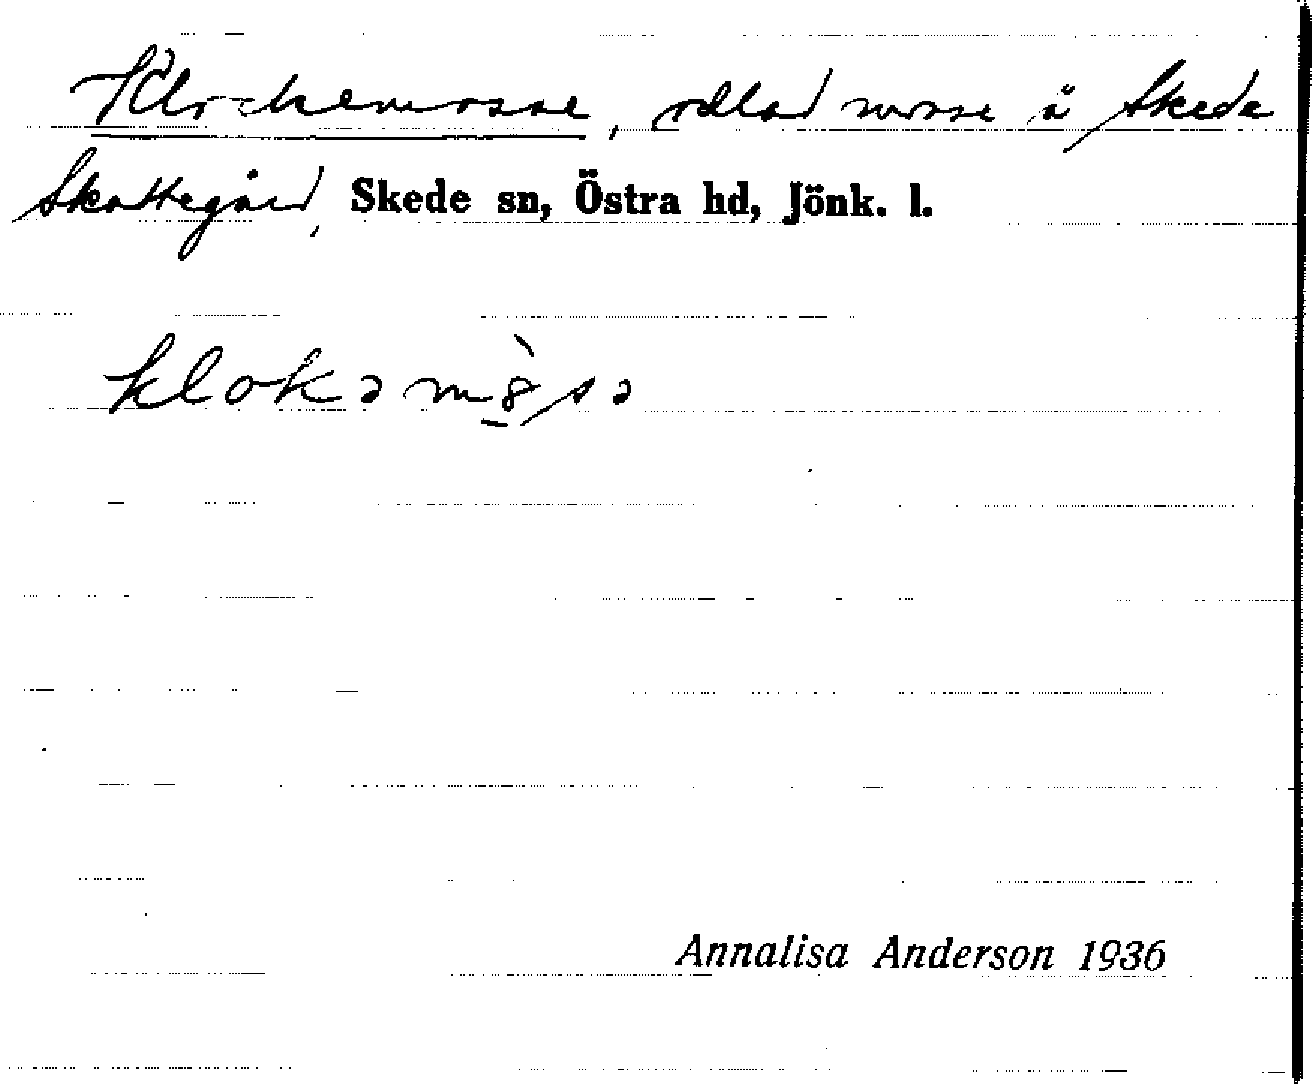 Klockemosse, odlad mosse å Skede
Skattegård, Skede sn, Östra hd, Jönk. l.
klokəm8̱̀sə
Annalisa Anderson 1936